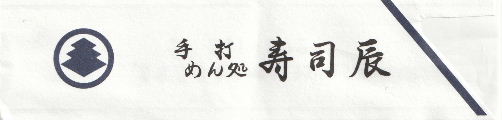 手打
めん処
寿司辰